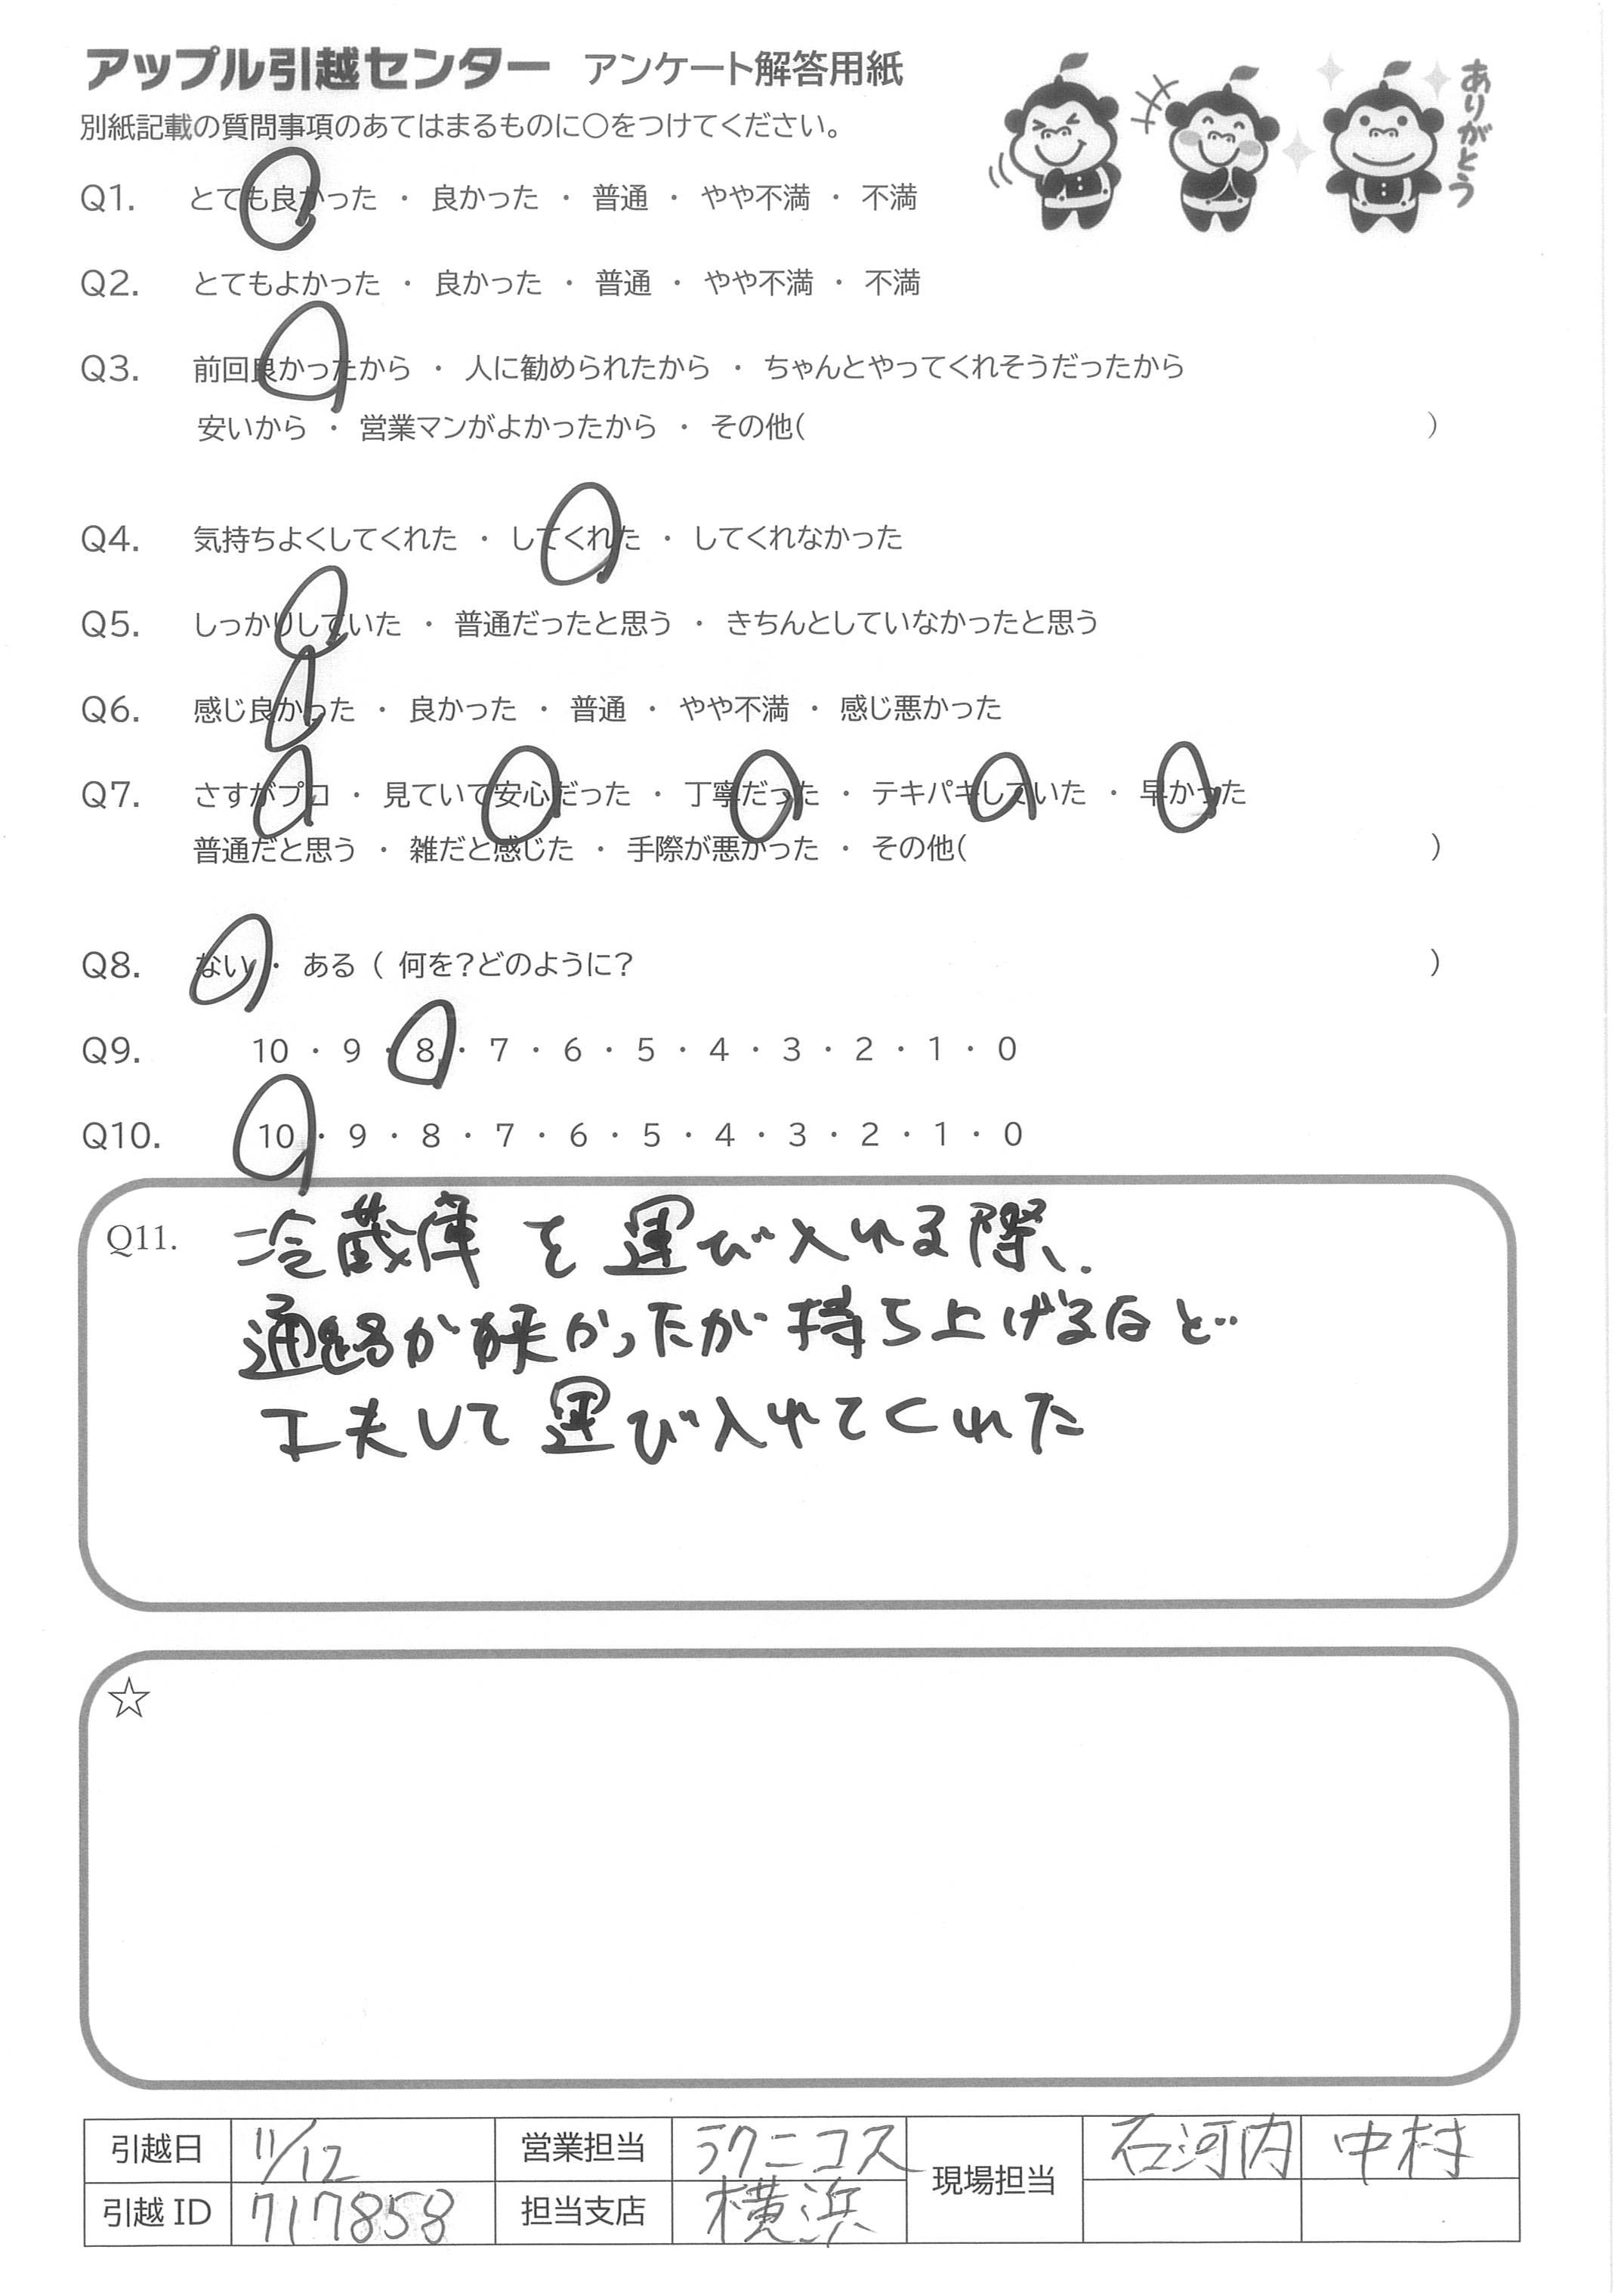 アップル引越センター アンケート解答用紙
ありがとう
別紙記載の質問事項のあてはまるものに○をつけてください。
Q1. とても良かった ・ 良かった ・ 普通 ・ やや不満 ・ 不満
Q2. とてもよかった ・ 良かった ・ 普通 ・ やや不満 ・ 不満
Q3. 前回良かったから ・ 人に勧められたから ・ ちゃんとやってくれそうだったから
安いから ・ 営業マンがよかったから ・ その他( )
Q4. 気持ちよくしてくれた ・ してくれた ・ してくれなかった
Q5. しっかりしていた ・ 普通だったと思う ・ きちんとしていなかったと思う
Q6. 感じ良かった ・ 良かった ・ 普通 ・ やや不満 ・ 感じ悪かった
Q7. さすがプロ ・ 見ていて安心だった ・ 丁寧だった ・ テキパキしていた ・ 早かった
普通だと思う ・ 雑だと感じた ・ 手際が悪かった ・ その他( )
Q8. ない ・ ある ( 何を?どのように? )
Q9. 10 ・ 9 ・ 8 ・ 7 ・ 6 ・ 5 ・ 4 ・ 3 ・ 2 ・ 1 ・ 0
Q10. 10 ・ 9 ・ 8 ・ 7 ・ 6 ・ 5 ・ 4 ・ 3 ・ 2 ・ 1 ・ 0
Q11. 冷蔵庫を運び入れる際、
通路が狭かったが持ち上げるなど
工夫して運び入れてくれた
☆
引越日 11/12 営業担当 ラクニコス 現場担当 石河内 中村
引越ID 717858 担当支店 横浜